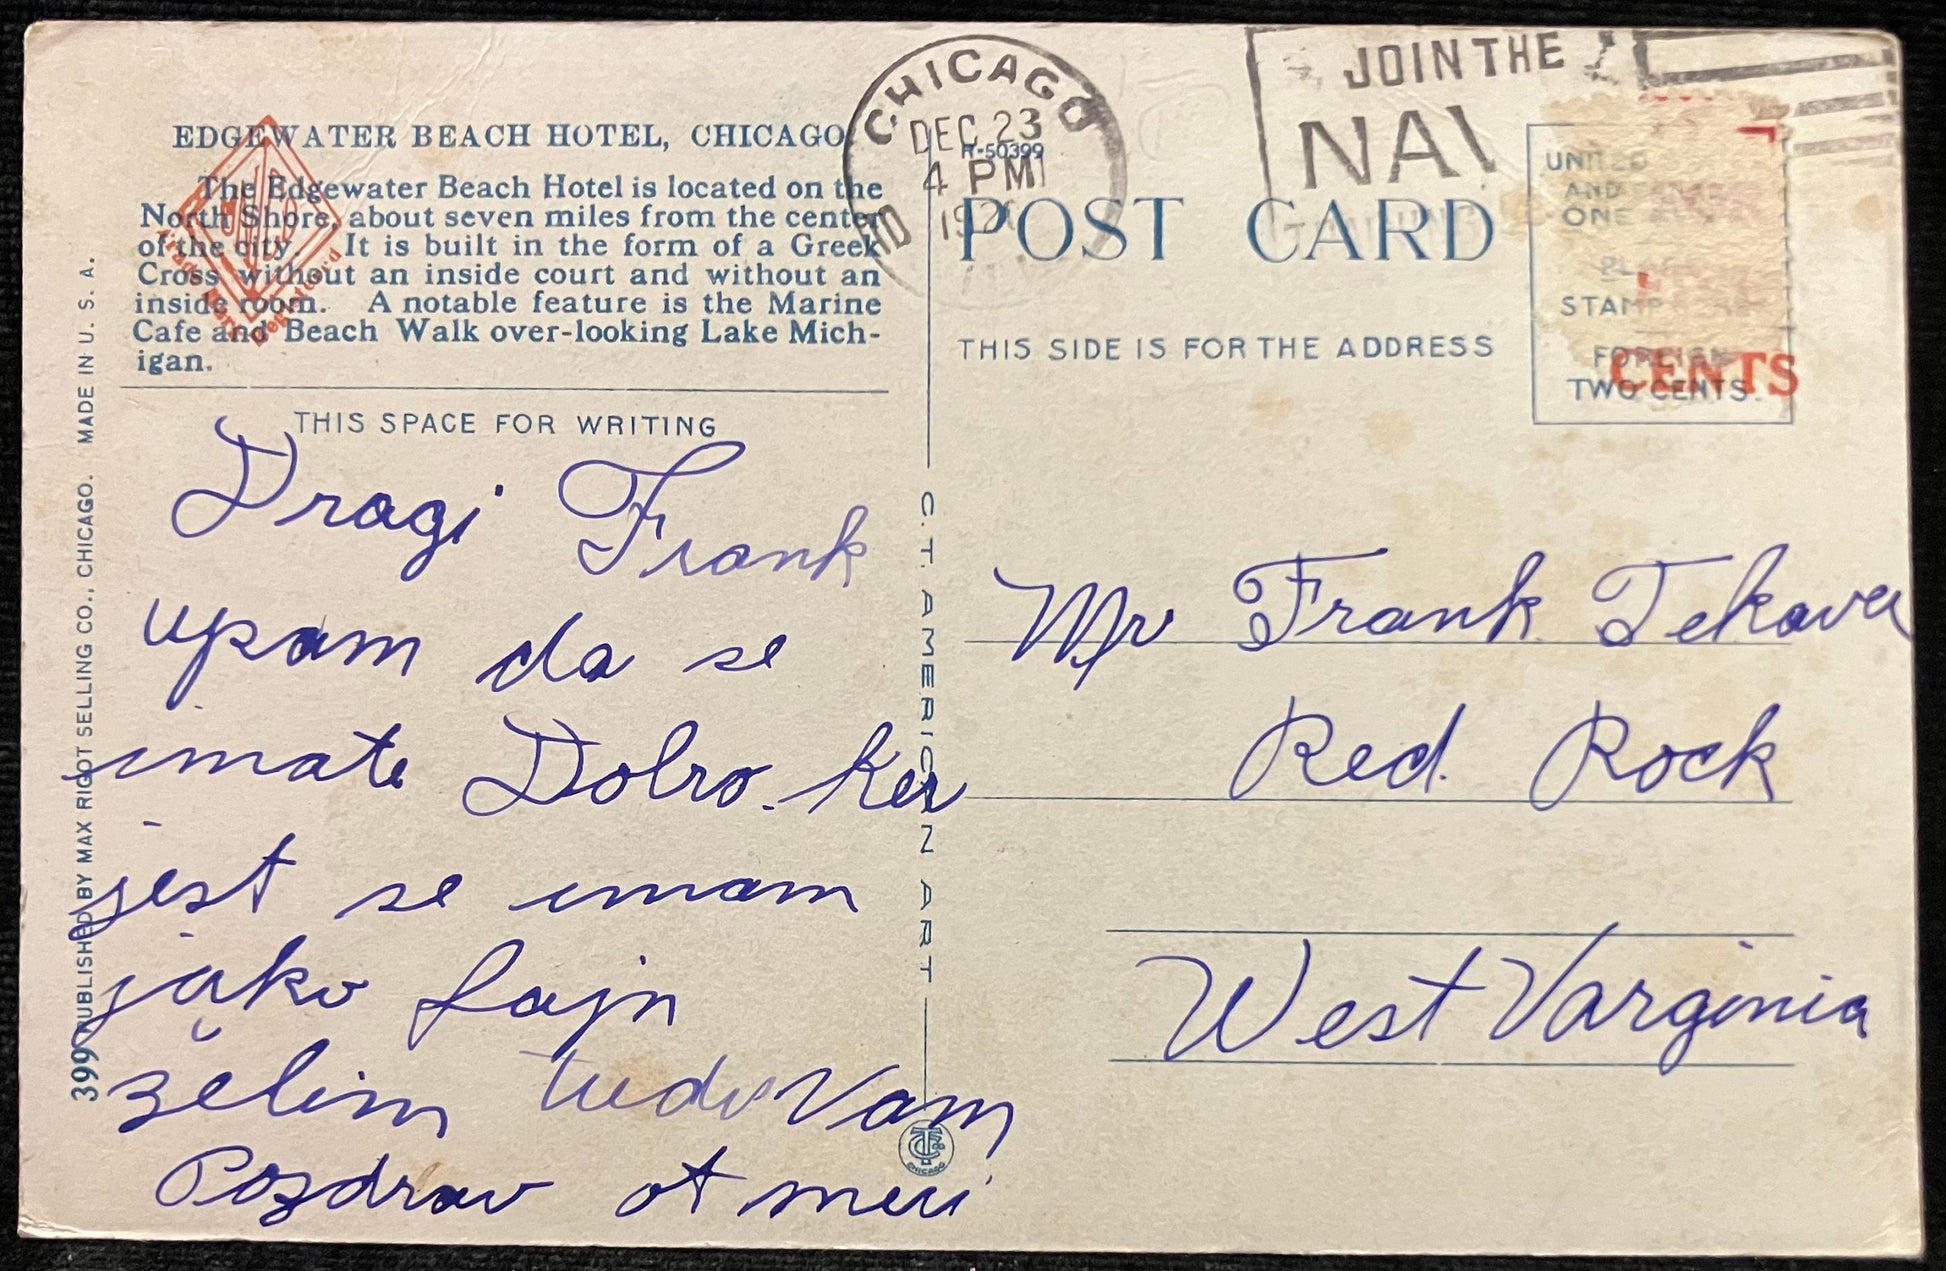 EDGEWATER BEACH HOTEL, CHICAGO
The Edgewater Beach Hotel is located on the
North Shore, about seven miles from the center
of the city. It is built in the form of a Greek
Cross without an inside court and without an
inside room. A notable feature is the Marine
Cafe and Beach Walk over-looking Lake Mich-
igan.
THIS SPACE FOR WRITING
Dragi Frank
upam da se
imate Dobro. ker
jest se imam
jako fajn
želim tudi Vam
Pozdrav ot meri
399 PUBLISHED BY MAX RIGOT SELLING CO., CHICAGO. MADE IN U. S. A.
C. T. AMERICAN ART
CHICAGO
DEC 23
4 PM
R-50399
JOIN THE
NA
POST CARD
THIS SIDE IS FOR THE ADDRESS
UNITED
AND
ONE
STAMP
FOREIGN
TWO CENTS.
CENTS
Mr Frank Tekavec
Red Rock
West Varginia
CHICAGO